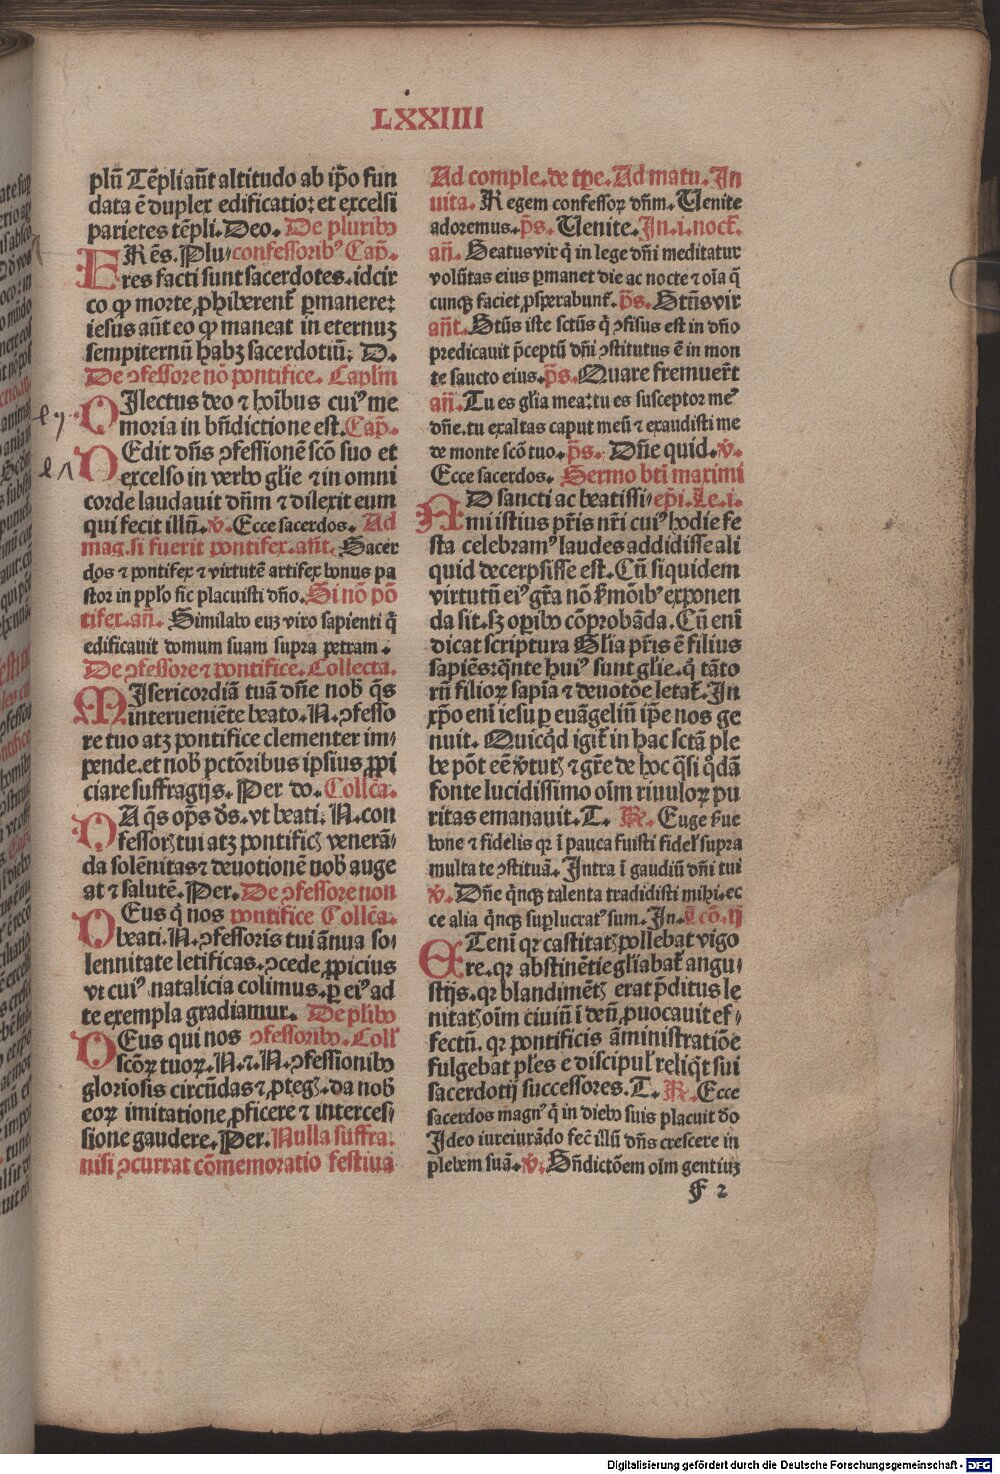 LXXIIII
plū Tēpli aūt altitudo ab ip̄o fun
data ē duplex edificatio: et excelsi
parietes tēpli. Deo. De pluribꝰ
ER ēs. Plu- confessoribꝰ Cap̄.
res facti sunt sacerdotes. idcir
co qꝫ morte ꝓhiberent̄ ꝑmanere:
iesus aūt eo qꝫ maneat in eternuꝫ
sempiternū habꝫ sacerdotiū: D.
De ꝯfessore nō pontifice. Caplm
DIlectus deo ⁊ hoībus cuiꝰ me
moria in bn̄dictione est. Cap̄.
DEdit dn̄s ꝯfessionē scō suo et
excelso in verbo glie ⁊ in omni
corde laudauit dn̄m ⁊ dilexit eum
qui fecit illū. v̄. Ecce sacerdos. Ad
mag. si fuerit pontifex. an̄t. Sacer
dos ⁊ pontifex ⁊ virtutē artifex bonus pa
stor in pp̄lo sic placuisti dn̄o. Si nō pō
tifex. an̄. Similabo euꝫ viro sapienti q̄
edificauit domum suam supra petram.
De ꝯfessore ⁊ pontifice. Collecta.
MIsericordiā tuā dn̄e nob̄ q̄s
interueniēte beato. N. ꝯfesso
re tuo atꝫ pontifice clementer im-
pende. et nob̄ pctōribus ipsius ꝓpi
ciare suffragijs. Per do. Collc̄a.
DA q̄s op̄s ds. vt beati. N. con
fessorꝭ tui atꝫ pontificꝭ venerā-
da solēnitas ⁊ deuotionē nob̄ auge
at ⁊ salutē. Per. De ꝯfessore non
DEus q̄ nos pontifice Collc̄a.
beati. N. ꝯfessoris tui ānua so-
lennitate letificas. ꝯcede ꝓpicius
vt cuiꝰ natalicia colimus. ꝑ eiꝰ ad
te exempla gradiamur. De plibꝰ
DEus qui nos ꝯfessoribꝰ. Coll̄
scōꝝ tuoꝝ. N. ⁊. N. ꝯfessionibꝰ
gloriosis circūdas ⁊ ꝓtegꝭ. da nob̄
eoꝝ imitatione ꝓficere ⁊ interces-
sione gaudere. Per. Nulla suffra.
nisi ꝯcurrat cōmemoratio festiua
Ad comple. de tp̄e. Ad matu. In
uita. R egem confessoꝝ dn̄m. Uenite
adoremus. p̄s. Uenite. In. i. noct̄.
an̄. Beatus vir q̄ in lege dn̄i meditatur
volūtas eius ꝑmanet die ac nocte ⁊ oīa q̄
cunqꝫ faciet ꝓsꝑabunt̄. p̄s. Btūs vir
an̄t. Btūs iste sctūs q̄ ꝯfisus est in dn̄o
predicauit p̄ceptū dn̄i ꝯstitutus ē in mon
te sancto eius. p̄s. Quare fremuer̄t
an̄. Tu es glia mea: tu es susceptor meꝰ
dn̄e. tu exaltas caput meū ⁊ exaudisti me
de monte scō tuo. p̄s. Dn̄e quid. v̄.
Ecce sacerdos. Sermo bt̄i maximi
AD sancti ac beatissi- ep̄i. Le. i.
mi istius pr̄is nr̄i cuiꝰ hodie fe
sta celebramꝰ laudes addidisse ali
quid decerpsisse est. Cū siquidem
virtutū eiꝰ gr̄a nō ẜmōibꝰ exponen
da sit. sꝫ oꝑibꝰ cōprobāda. Cū eni
dicat scriptura Glia pr̄is ē filius
sapiēs: q̄nte huiꝰ sunt glie. q̄ tāto
rū filioꝝ sapīa ⁊ deuotōe letat̄. In
xp̄o eni iesu ꝑ euāgeliū ip̄e nos ge
nuit. Quicq̄d igit̄ in hac sctā ple
be pōt eē v̄tutꝭ ⁊ gr̄e de hoc q̄si q̊dā
fonte lucidissimo oīm riuuloꝝ pu
ritas emanauit. T. R̄. Euge ẜue
bone ⁊ fidelis qꝛ ī pauca fuisti fidel̄ supra
multa te ꝯstituā. Intra ī gaudiū dn̄i tui
v̄. Dn̄e q̄nqꝫ talenta tradidisti mihi. ec
ce alia q̄nqꝫ suꝑlucratꝰ sum. In. Lcō. ij
EXTenī qꝛ castitatꝭ pollebat vigo
re. qꝛ abstinētie gliabat̄ angu-
stijs. qꝛ blandimētꝭ erat p̄ditus le
nitatꝭ oīm ciuiū ī deū ꝓuocauit ef-
fectū. qꝛ pontificis āministratiōe
fulgebat ples e discipul̄ reliq̄t sui
sacerdotij successores. T. R̄. Ecce
sacerdos magnꝰ q̄ in diebꝰ suis placuit do
Ideo iureiurādo fec̄ illū dn̄s crescere in
plebem suā. v̄. Bn̄dictōem oīm gentiuꝫ
f 2
Digitalisierung gefördert durch die Deutsche Forschungsgemeinschaft - DFG